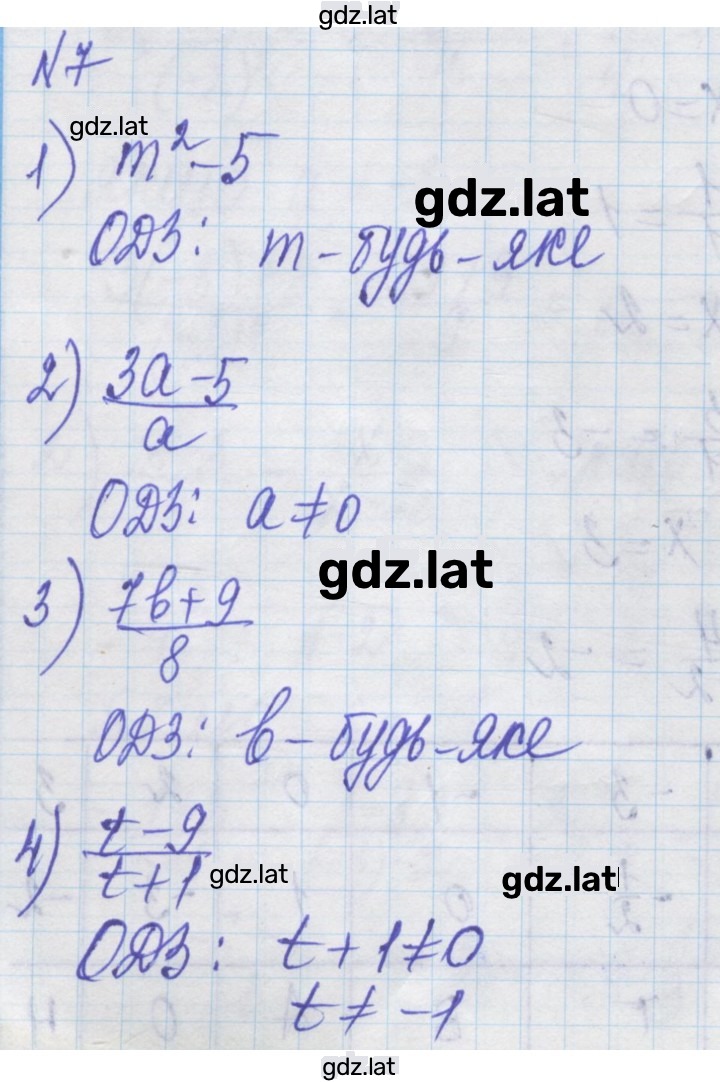 gdz.lat
N7
gdz.lat
1) m² - 5
gdz.lat
ОДЗ: m - будь-яке
2) 3a - 5
a
ОДЗ: a ≠ 0
gdz.lat
3) 7b + 9
8
ОДЗ: b - будь-яке
4) t - 9
t + 1
gdz.lat
gdz.lat
ОДЗ: t + 1 ≠ 0
t ≠ -1
gdz.lat